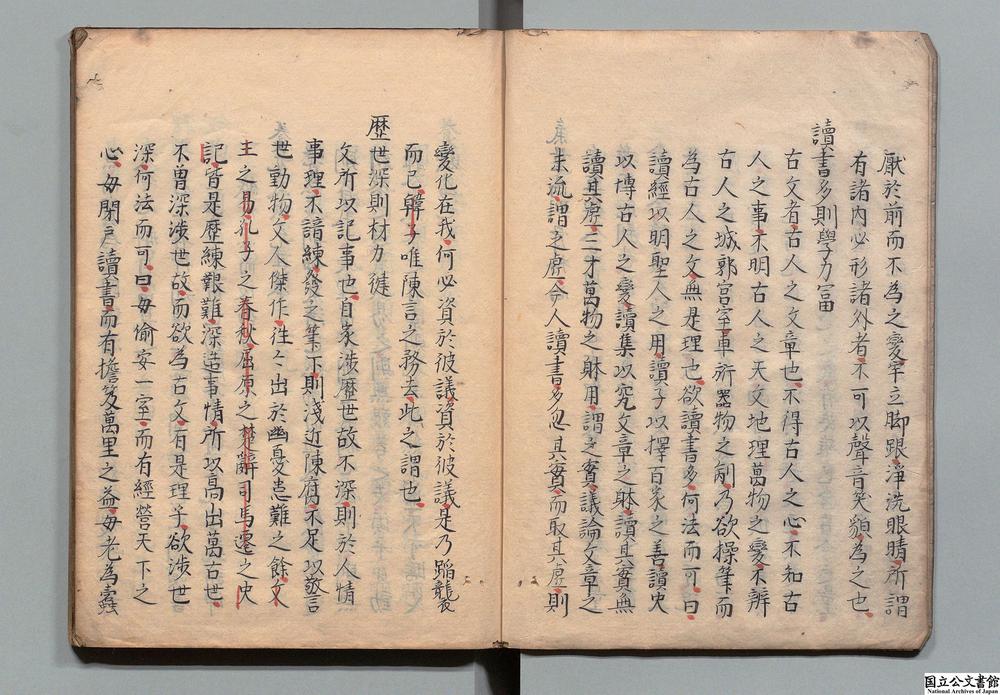 厭於前而不為之變牢立脚跟淨洗眼睛所謂
有諸内必形諸外者不可以聲音笑貌為之也
讀書多則學力富
古文者古人之文章也不得古人之心不知古
人之事不明古人之天文地理萬物之變不辨
古人之城郭宮室車所器物之制乃欲操筆而
為古人之文無是理也欲讀書多何法而可曰
讀經以明聖人之用讀子以擇百家之善讀史
以博古人之變讀集以究文章之躰讀其實無
讀其虚三才萬物之躰用謂之實議論文章之
末流謂之虚今人讀書多忽其實而取其虚則
變化在我何必資於彼議資於彼議是乃蹈襲
而已韓子唯陳言之務去此之謂也
歴世深則材力健
文所以記事也自家渉歴世故不深則於人情
事理不諳練發之筆下則淺近陳腐不足以驚
世動物文人傑作往々出於幽憂患難之餘文
王之易孔子之春秋屈原之楚辭司馬遷之史
記皆是歴練艱難深造事情所以高出萬古世
不曽深渉世故而欲為古文有是理乎欲渉世
深何法而可曰毋偷安一室而有經營天下之
心毋閉戸讀書而有擔簦萬里之益毋老為蠹
国立公文書館
National Archives of Japan